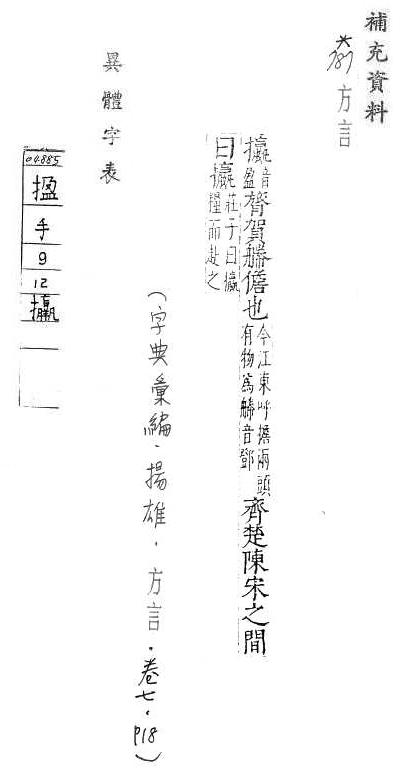 補充資料
*787 方言
攍音盈膂賀儋也今江東呼擔兩頭有物為音鄧齊楚陳宋之間
曰攍莊子曰攍糧而赴之
(字典彙編·揚雄·方言·卷七·P18)
異體字表
04885
㨕
手
9
12
攍